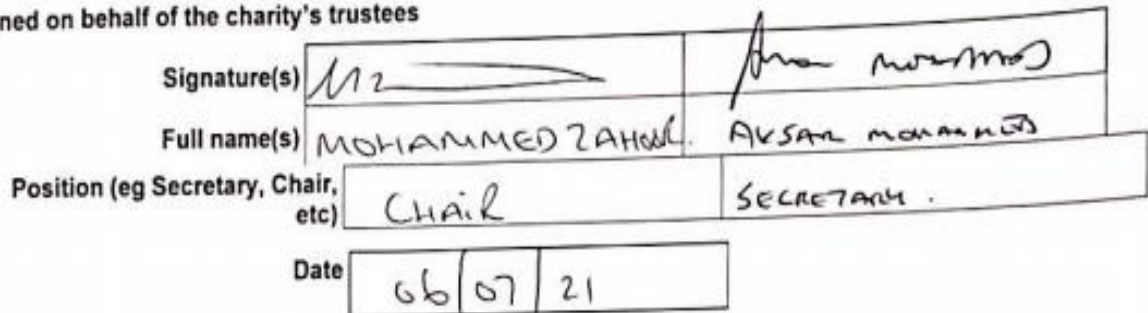 ned on behalf of the charity's trustees
Signature(s)
Full name(s) MOHAMMED ZAHOOR. AKSAR MOHAMMED
Position (eg Secretary, Chair, CHAIR SECRETARY.
etc)
Date 06 07 21